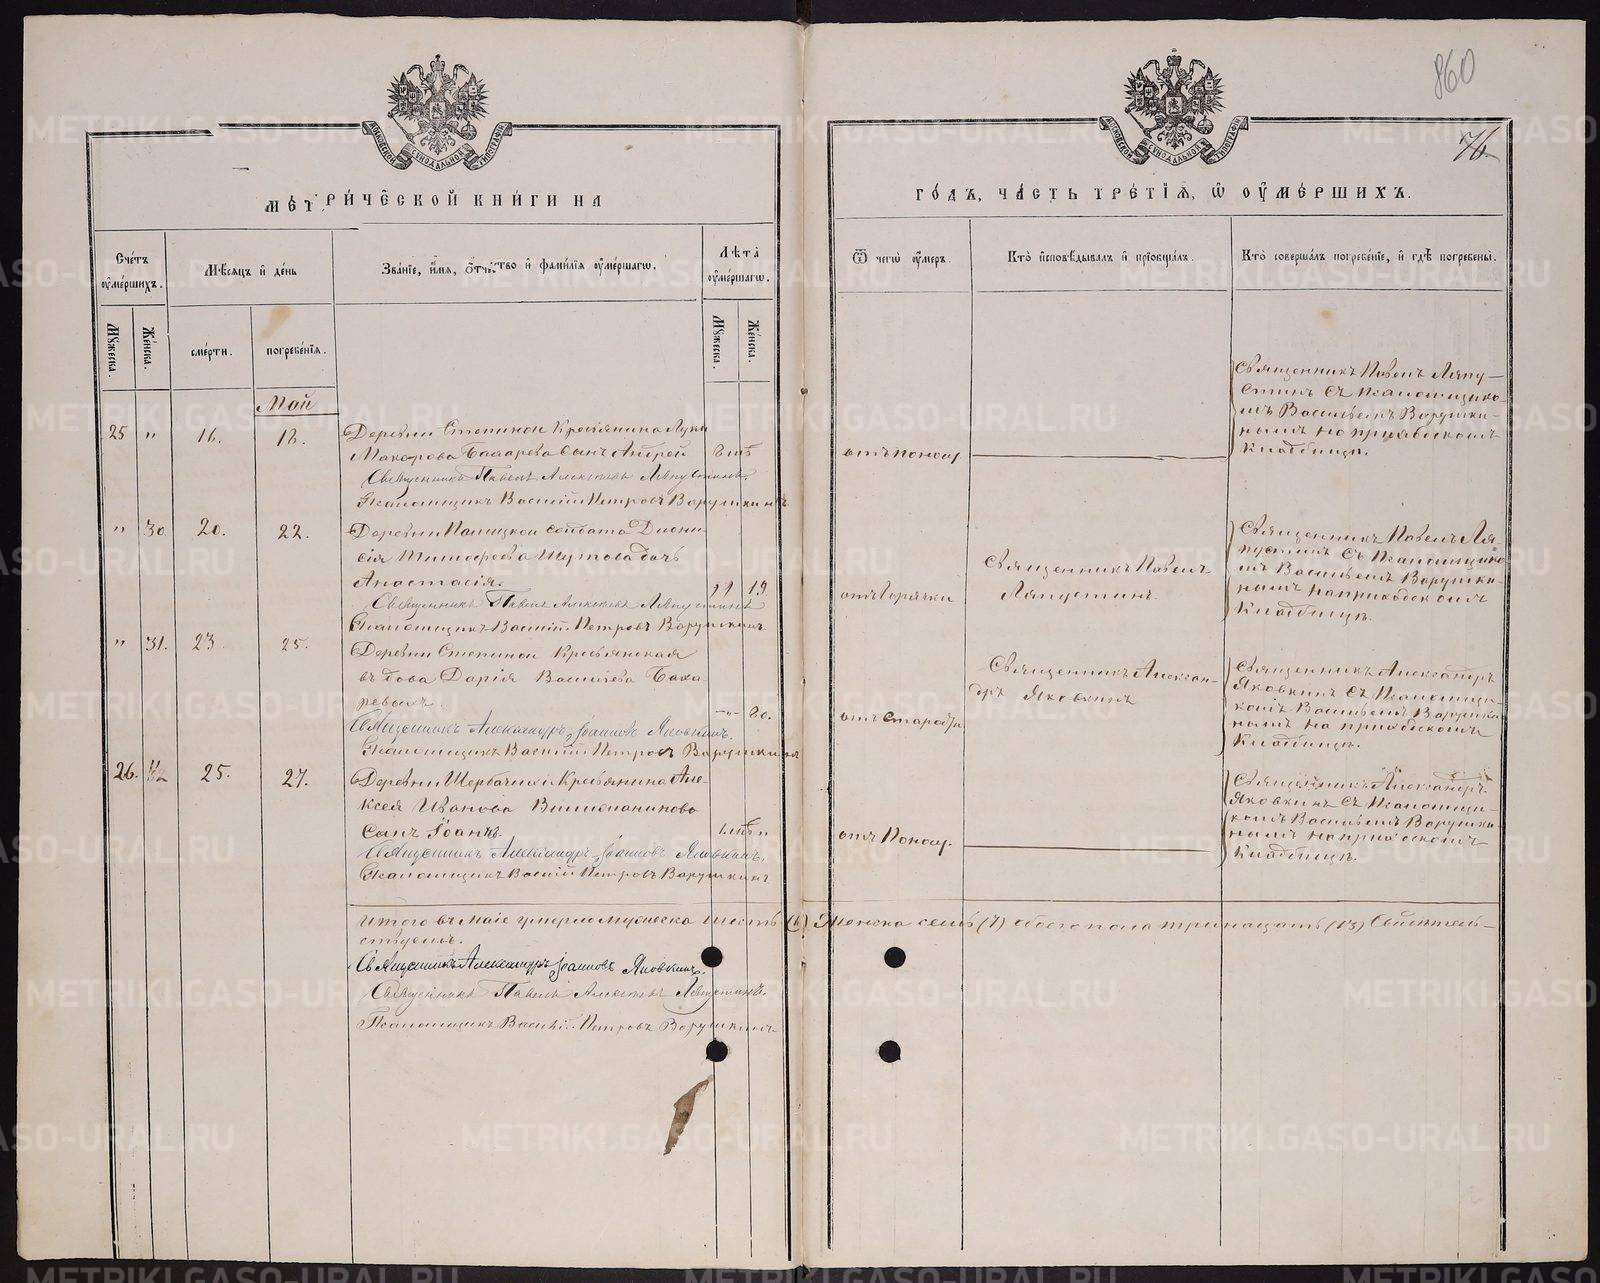 860
76
МОСКОВСКОЙ СѴНОДАЛЬНОЙ ТИПОГРАФІИ
МОСКОВСКОЙ СѴНОДАЛЬНОЙ ТИПОГРАФІИ
МЕТРИЧЕСКОЙ КНИГИ НА
ГОДЪ, ЧАСТЬ ТРЕТІЯ, Ѡ ОУМЕРШИХЪ.
Счетъ оумершихъ.
Мѣсяцъ и день
Званіе, имя, отчество и фамилія оумершагѡ.
Лѣта оумершагѡ.
Ѿ чегѡ оумеръ.
Кто исповѣдывалъ и пріобщалъ.
Кто совершалъ погребеніе, и гдѣ погребены.
Мꙋжеска.
Женска.
смерти.
погребенія.
Мꙋжеска.
Женска.
Май
25 " 16. 18.
Деревни Степиной Крестьянина Луки
Макарова Бахарева сынъ Андрей
Священникъ Павелъ Алексѣевъ Ляпустинъ.
Псаломщикъ Василій Петровъ Варушкинъ
отъ поноса.
Священникъ Павелъ Ляпу-
стинъ съ Псаломщико-
мъ Васильемъ Варушки-
нымъ на приходскомъ
Кладбищѣ.
" 30. 20. 22.
Солдата Діони-
сія Тимофеева Шутова дочь
Анастасія.
19
Священникъ Павелъ Алексѣевъ Ляпустинъ
Псаломщикъ Василій Петровъ Варушкинъ.
отъ горячки
Священникъ Павелъ
Ляпустинъ.
Священникъ Павелъ Ля-
пустинъ съ Псаломщико-
мъ Васильемъ Варушки-
нымъ на приходскомъ
Кладбищѣ.
" 31. 23. 25.
Деревни Степиной Крестьянская
вдова Дарія Васильева Баха-
ревыхъ.
-"- 80.
Священникъ Александръ Іоанновъ Яковкинъ.
Псаломщикъ Василій Петровъ Варушкинъ
отъ старости
Священникъ Александ-
ръ Яковкинъ
Священникъ Александръ
Яковкинъ съ Псаломщи-
комъ Васильемъ Варушки-
нымъ на приходскомъ
Кладбищѣ.
26. 25. 27.
Деревни Щербачихи Крестьянина Але-
ксея Иванова
сынъ Іоаннъ.
Священникъ Александръ Іоанновъ Яковкинъ.
Псаломщикъ Василій Петровъ Варушкинъ
отъ поноса.
Священникъ Александръ
Яковкинъ съ Псаломщи-
комъ Васильемъ Варушки-
нымъ на приходскомъ
Кладбищѣ.
Итого въ Маѣ умерло мужеска шесть (6) Женска семь (7) обоего пола тринадцать (13) Свидѣтель-
ствуемъ.
Священникъ Александръ Іоанновъ Яковкинъ.
Священникъ Павелъ Алексѣевъ Ляпустинъ.
Псаломщикъ Василій Петровъ Варушкинъ
METRIKI.GASO-URAL.RU